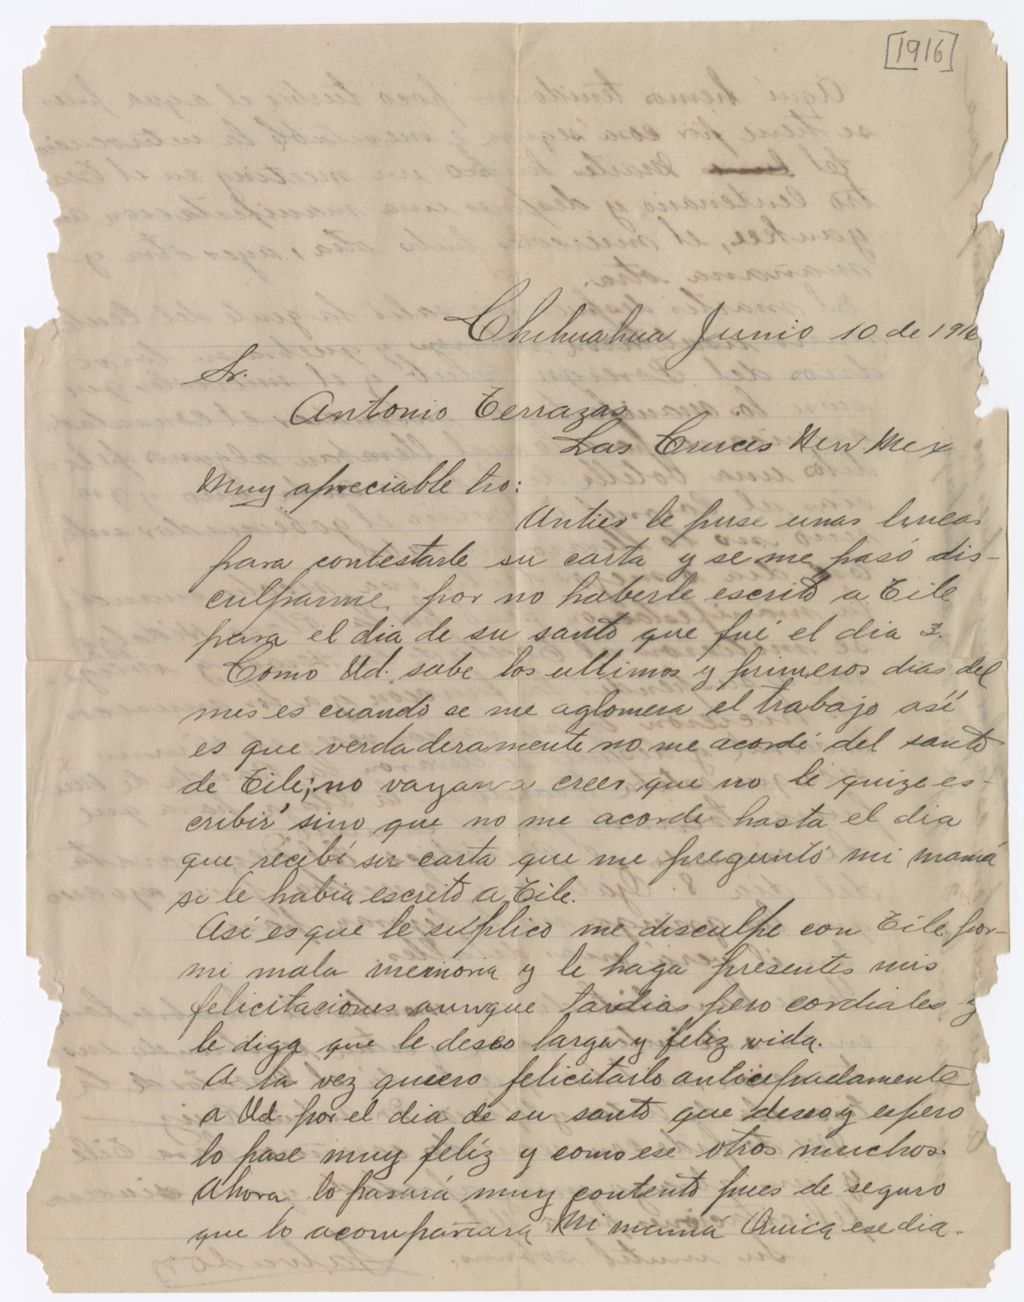 [1916]
Chihuahua Junio 10 de 1916
Sr.
Antonio Terrazas
Las Cruces New Mex
Muy apreciable tio:
Antier le puse unas lineas
para contestarle su carta y se me pasó dis-
culparme por no haberle escrito a Tile
para el dia de su santo que fué el dia 3.
Como Ud. sabe los ultimos y primeros dias del
mes es cuando se me aglomera el trabajo así
es que verdaderamente no me acordé del santo
de Tile; no vayan a creer que no le quize es-
cribir sino que no me acorde hasta el dia
que recibí su carta que me preguntó mi mamá
si le habia escrito a Tile.
Así es que le suplico me disculpe con Tile por
mi mala memoria y le haga presentes mis
felicitaciones aunque tardias pero cordiales y
le diga que le deseo larga y feliz vida.
A la vez quiero felicitarlo anticipadamente
a Ud. por el dia de su santo que deseo y espero
lo pase muy feliz y como ese otros muchos.
Ahora lo pasará muy contento pues de seguro
que lo acompañara Mi mamá ese dia.